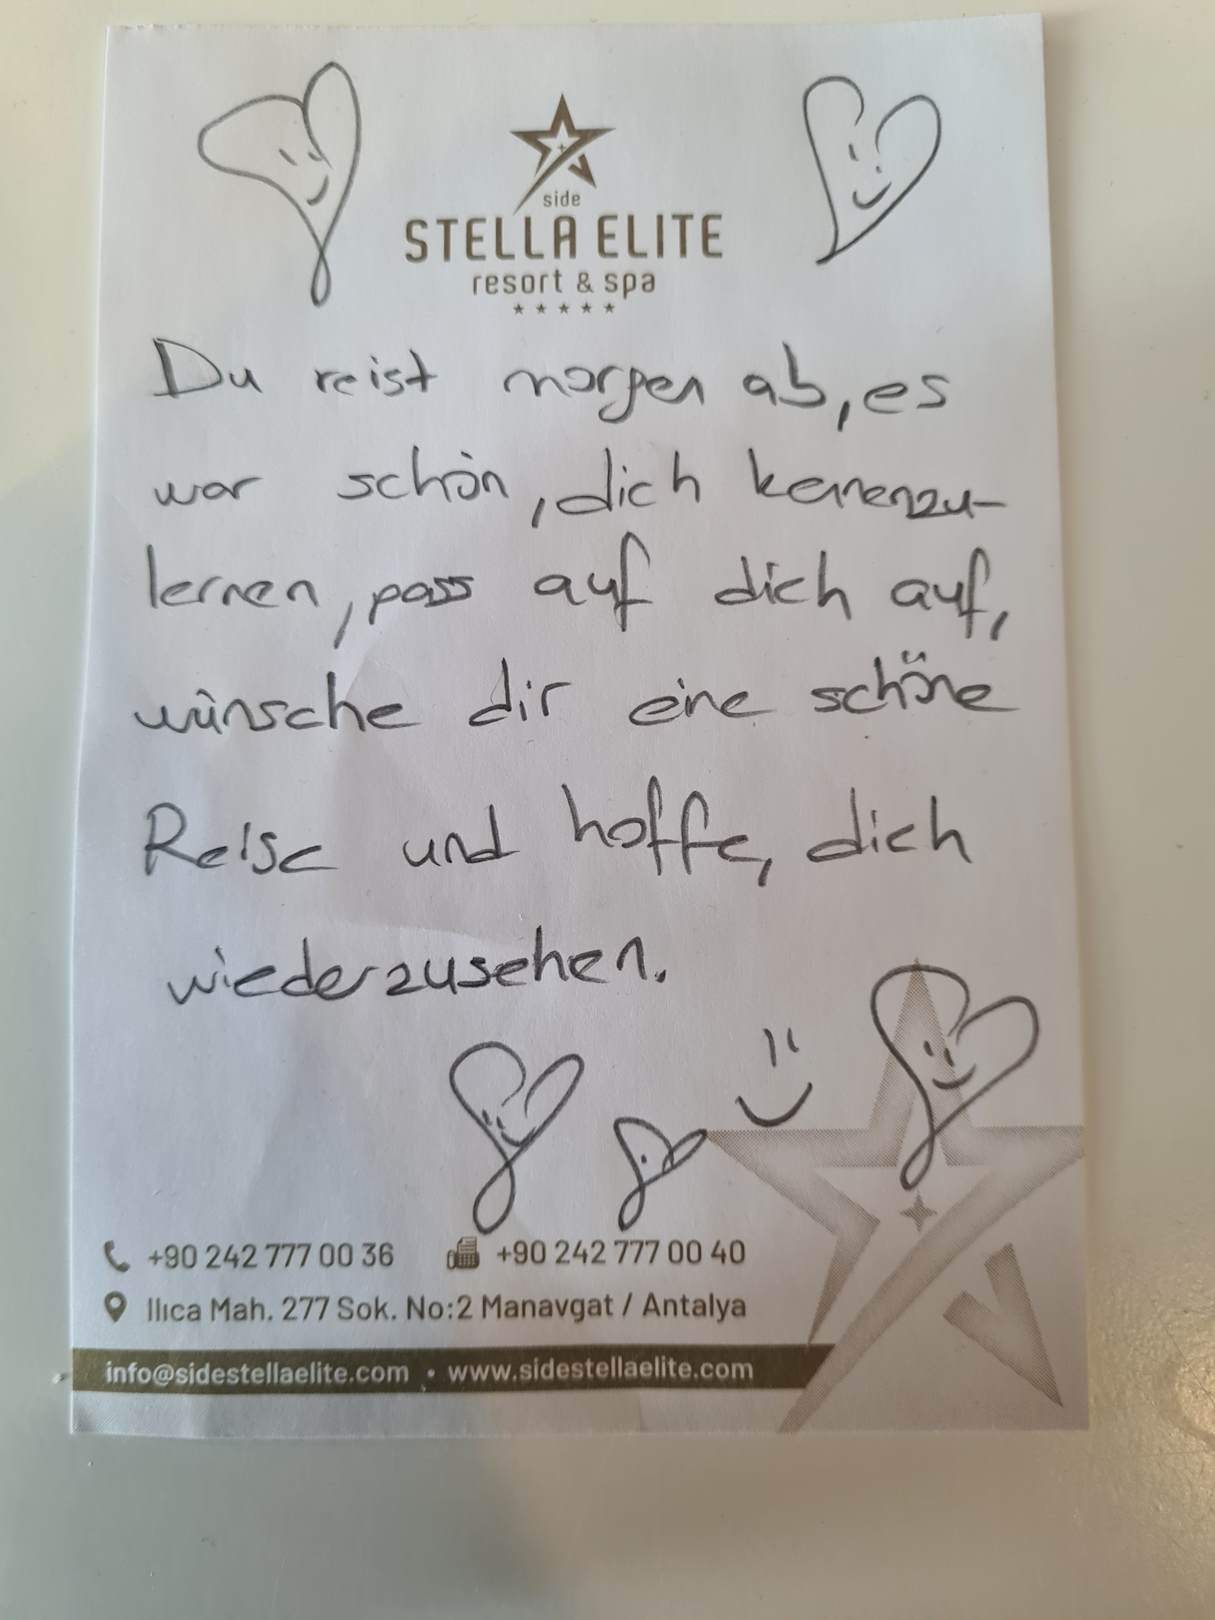 side
STELLA ELITE
resort & spa
Du reist morgen ab, es
war schön, dich kennenzu-
lernen, pass auf dich auf,
wünsche dir eine schöne
Reise und hoffe, dich
wiederzusehen.
+90 242 777 00 36 +90 242 777 00 40
Ilıca Mah. 277 Sok. No:2 Manavgat / Antalya
info@sidestellaelite.com • www.sidestellaelite.com